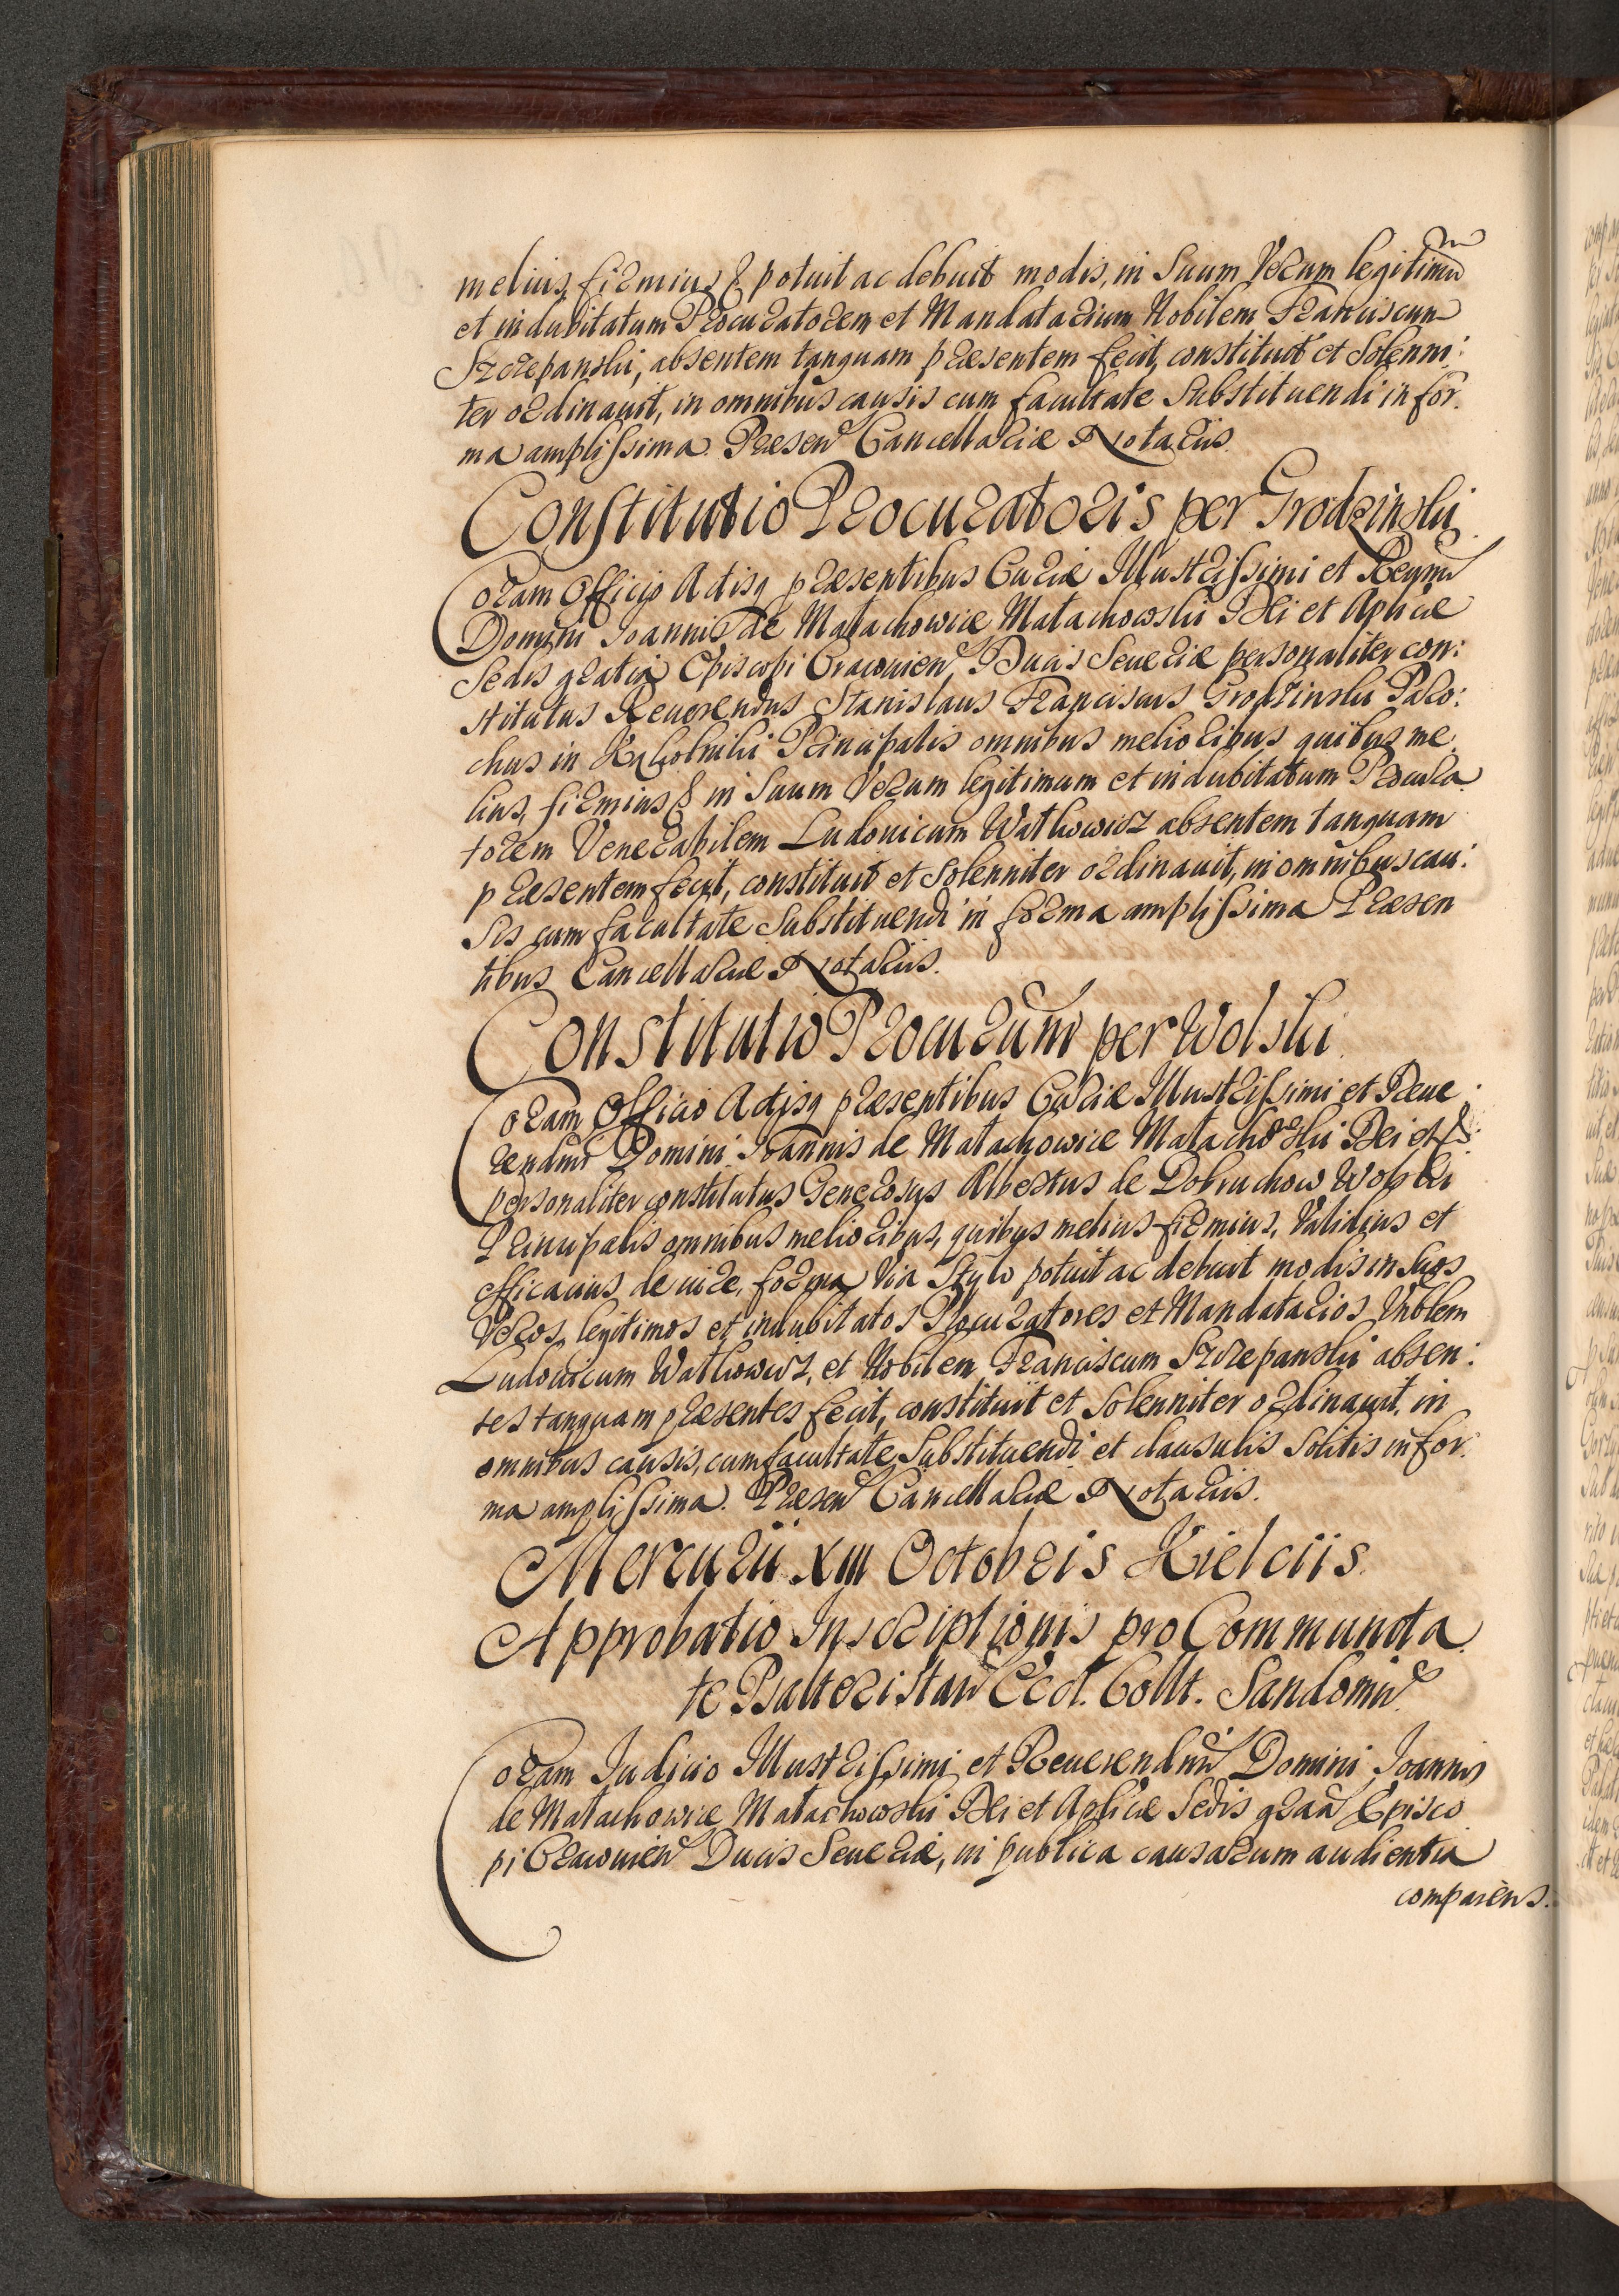 melius, firmius & potuit ac debuit modis, in Suum Verum legitimũ
et indubitatum Procuratorem et Mandatarium Nobilem Franciscum
Szczepanski, absentem tanquam præsentem fecit, constituit et Solenni:
ter ordinauit, in omnibus causis cum facultate Substituendi in for:
ma amplissima. Præsen Cancellariæ Notariis.
Constitutio Procuratoris per Grodzinski.
Coram Officio Actisq præsentibus Curiæ Illustrissimi et Reymi
Domini Joannis de Małachowice Małachowski Dei et Aplicæ
Sedis gratia Episcopi Cracouien Ducis Seueriæ personaliter con:
stitutus Reuerendus Stanislaus Franciscus Grodzinski Paro:
chus in Principalis omnibus melioribus quibus me
lius, firmius & in Suum Verum legitimum et indubitatum Procura
torem Venerabilem Ludouicum Watkowicz absentem tanquam
præsentem fecit, constituit et Solenniter ordinauit, in omnibus cau:
sis cum facultate Substituendi in forma amplissima Præsen
tibus Cancellariæ Notariis.
Constitutio Procurum per Wolski.
Coram Officio Actisq præsentibus Curiæ Illustrissimi et Reue:
rendmi Domini Joannis de Małachowice Małachowski Dei et &
personaliter constitutus Generosus Albertus de Dobruchow Wolski
Principalis omnibus melioribus, quibus melius firmius, Validius et
efficacius de iure, forma Via Stylo potuit ac debuit modis in Suos
Veros, legitimos et indubitatos Procuratores et Mandatarios Vnblem
Ludouicum Watkowicz, et Nobilem Franciscum Szczepanski absen:
tes tanquam præsentes fecit, constituit et Solenniter ordinauit, in
omnibus causis, cum facultate Substituendi et clausulis Solitis in for:
ma amplissima. Præsen Cancellariæ Notariis.
Mercurii XIII Octobris Kielciis.
Approbatio Inscriptionis pro Communita
te Psalteristarũ Eccl. Collt. Sandomir
Coram Judicio Illustrissimi et Reuerendmi Domini Joannis
de Małachowice Małachowski Dei et Aplicæ Sedis graã Episco
pi Cracouien Ducis Seueriæ, in publica causarum audientia
comparens.